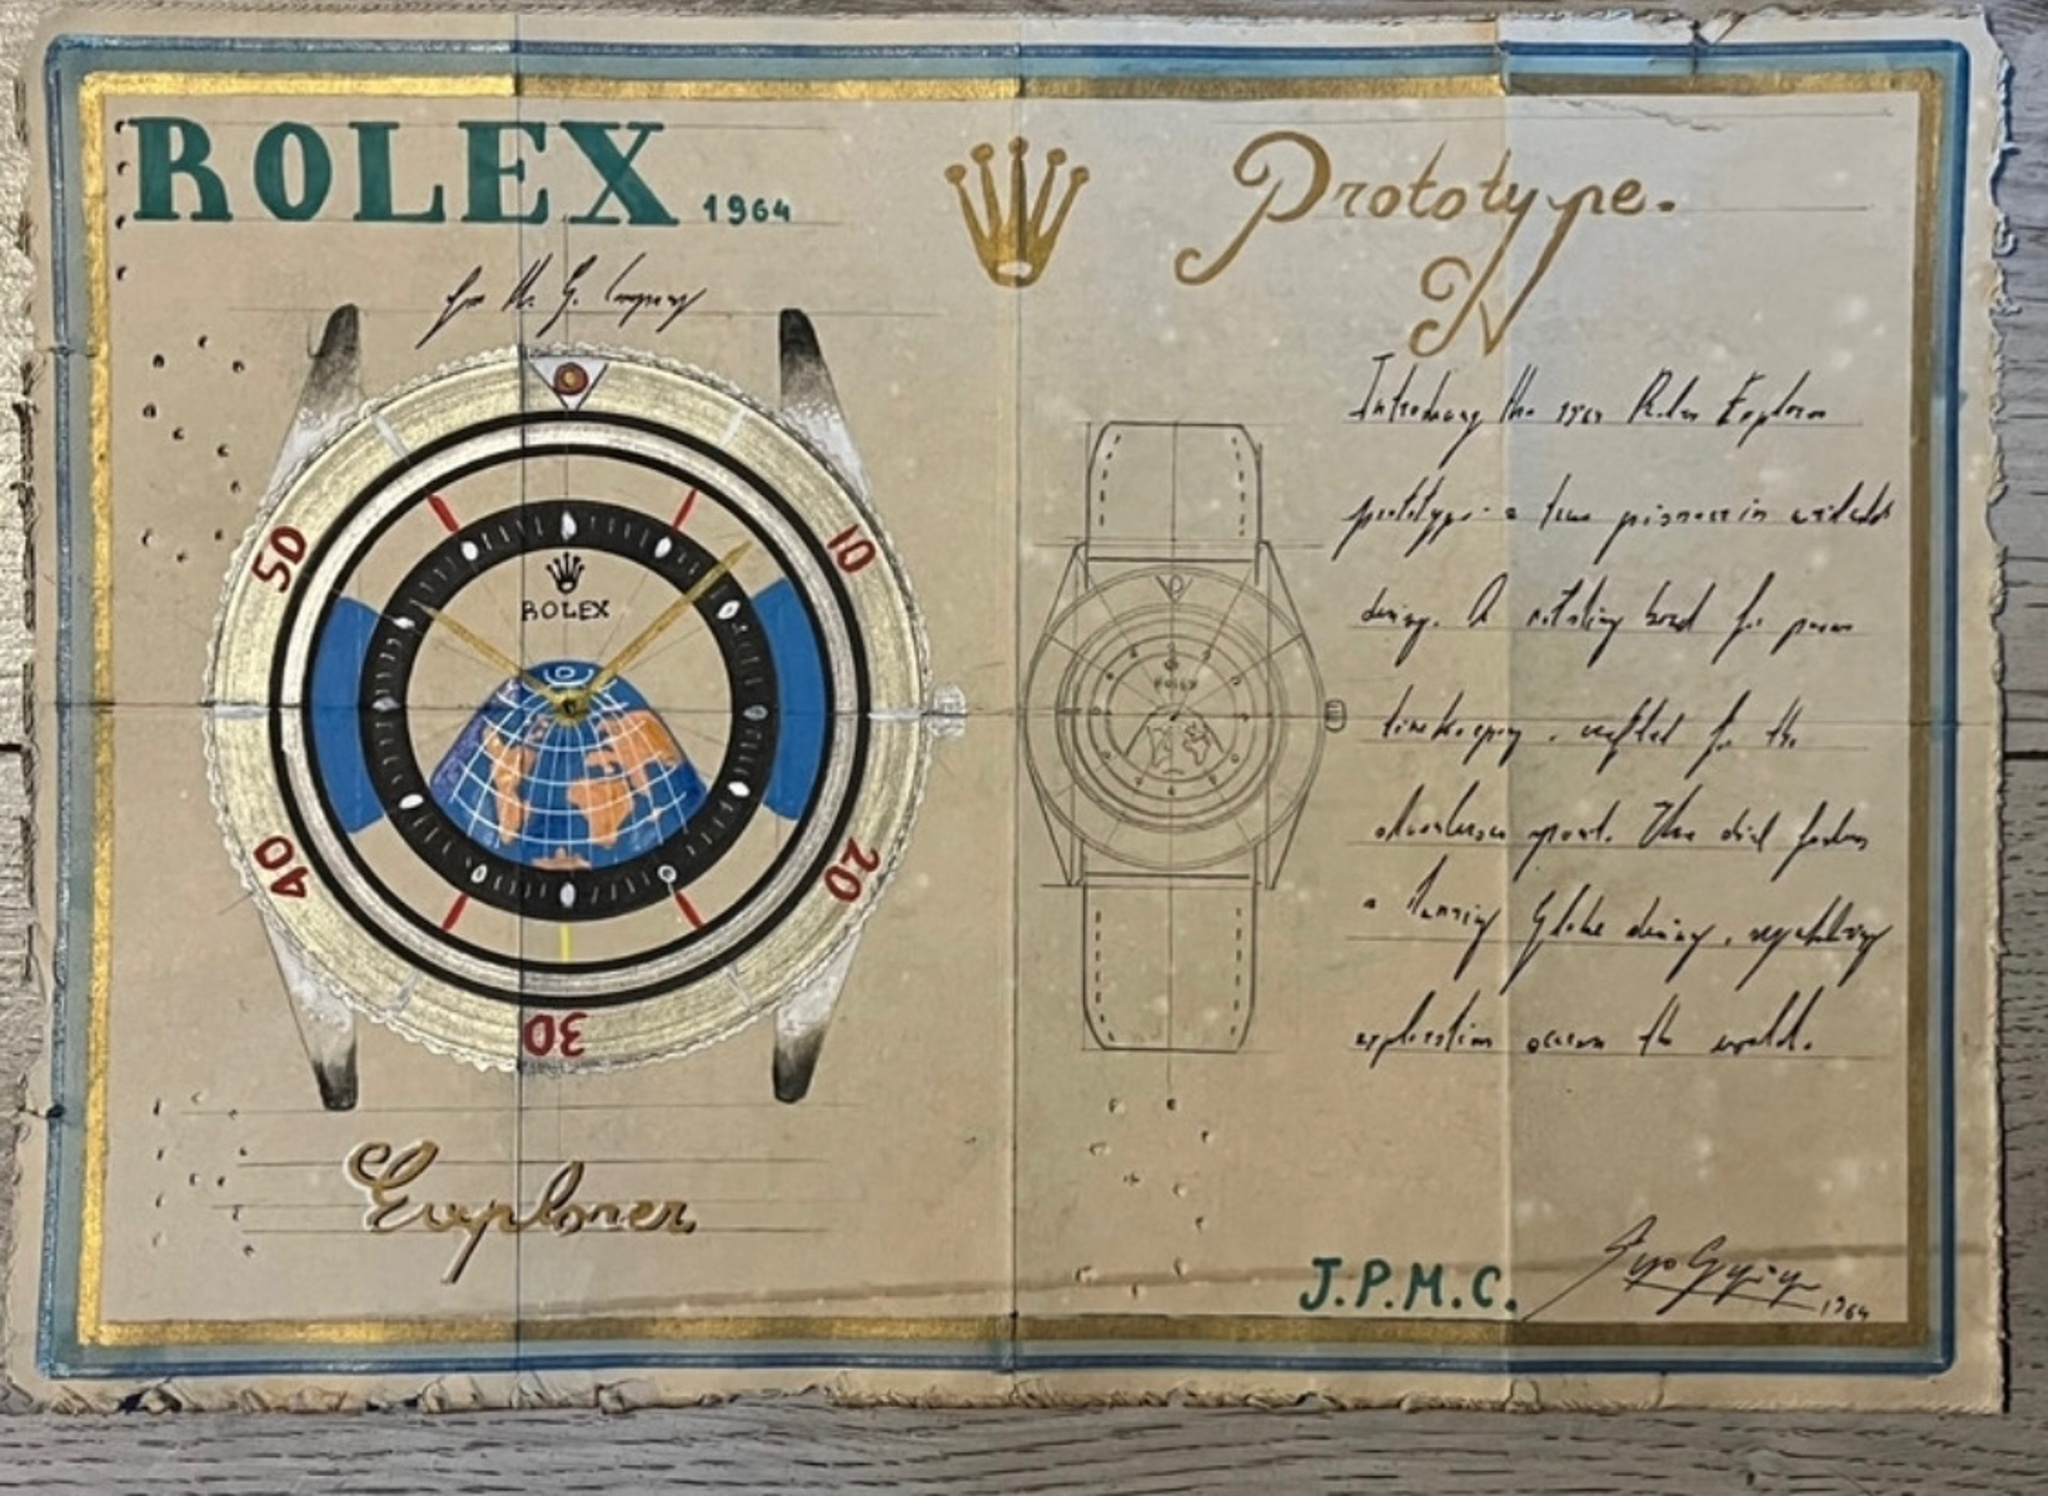 ROLEX 1964
Prototype.
for
Introducing the 1964 Rolex Explorer
prototype - a true pioneer in watch
design. A rotating bezel for
timekeeping, crafted for the
sport. The dial
a Globe design,
exploration across the world.
50
10
ROLEX
40
20
30
Explorer
J.P.M.C.
1964